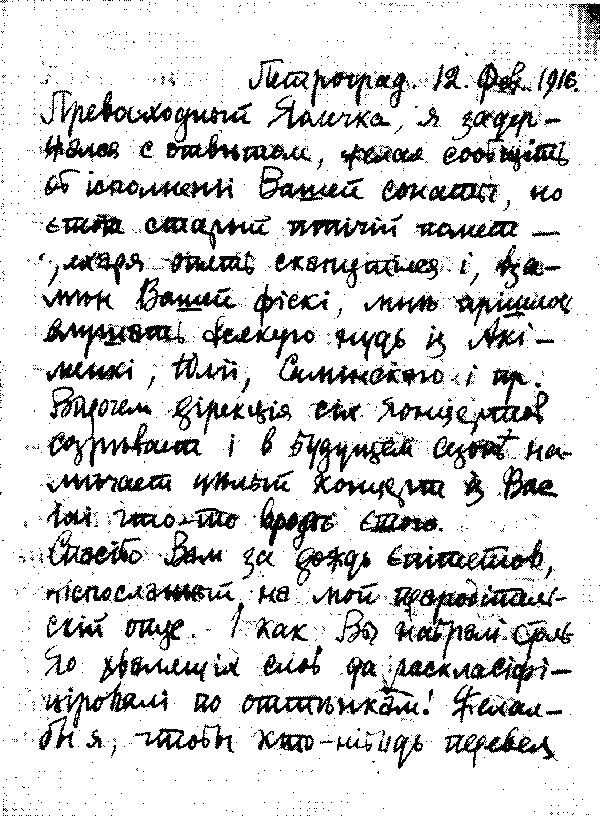 Петроград. 12. Фев. 1916.
Превосходный Яличка, я задер-
жался с ответом, желая сообщить
об ісполнениі Вашей сонаты, но
єтот старый птічій помет —
лекаря опять скапутілся і, вза-
мен Вашей фіскі, мне прішлось
слушать всякую нудь із Акі-
менкі, Юліі, Симінского і пр.
Впрочем дірекція сіх концертов
созрывает і в будущем сезоне на-
мічает целый концерт із Вас
ілі что-то вроде єтого.
Спасібо Вам за дождь єпітетов,
ніспосланный на мой прародітель-
скій опус. І как Вы набралі столь-
ко хвалящіх слов да расклассіфі-
ціровалі по оттенкам! Желал-
бы я, чтобы кто-нібудь перевел